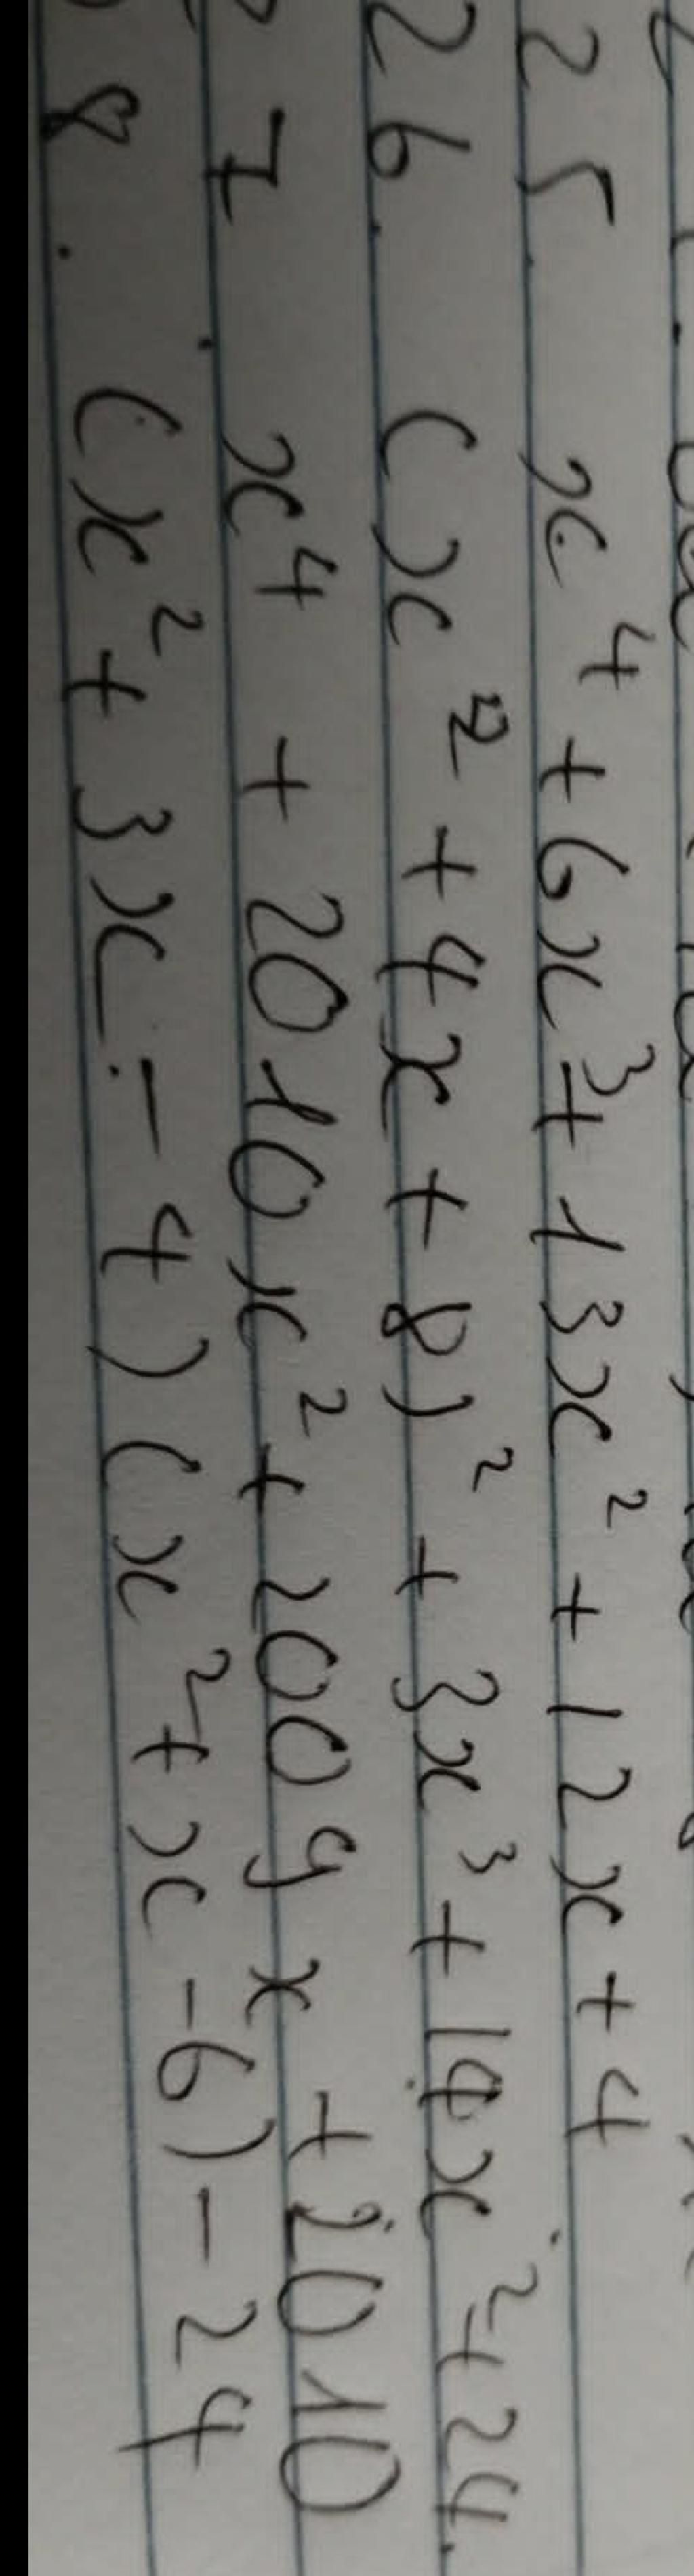 25. x⁴ + 6x³ + 13x² + 12x + 4
26. (x² + 4x + 8)² + 3x³ + 14x² + 24.
7. x⁴ + 2010x² + 2009x + 2010
8. (x² + 3x - 4)(x² + x - 6) - 24